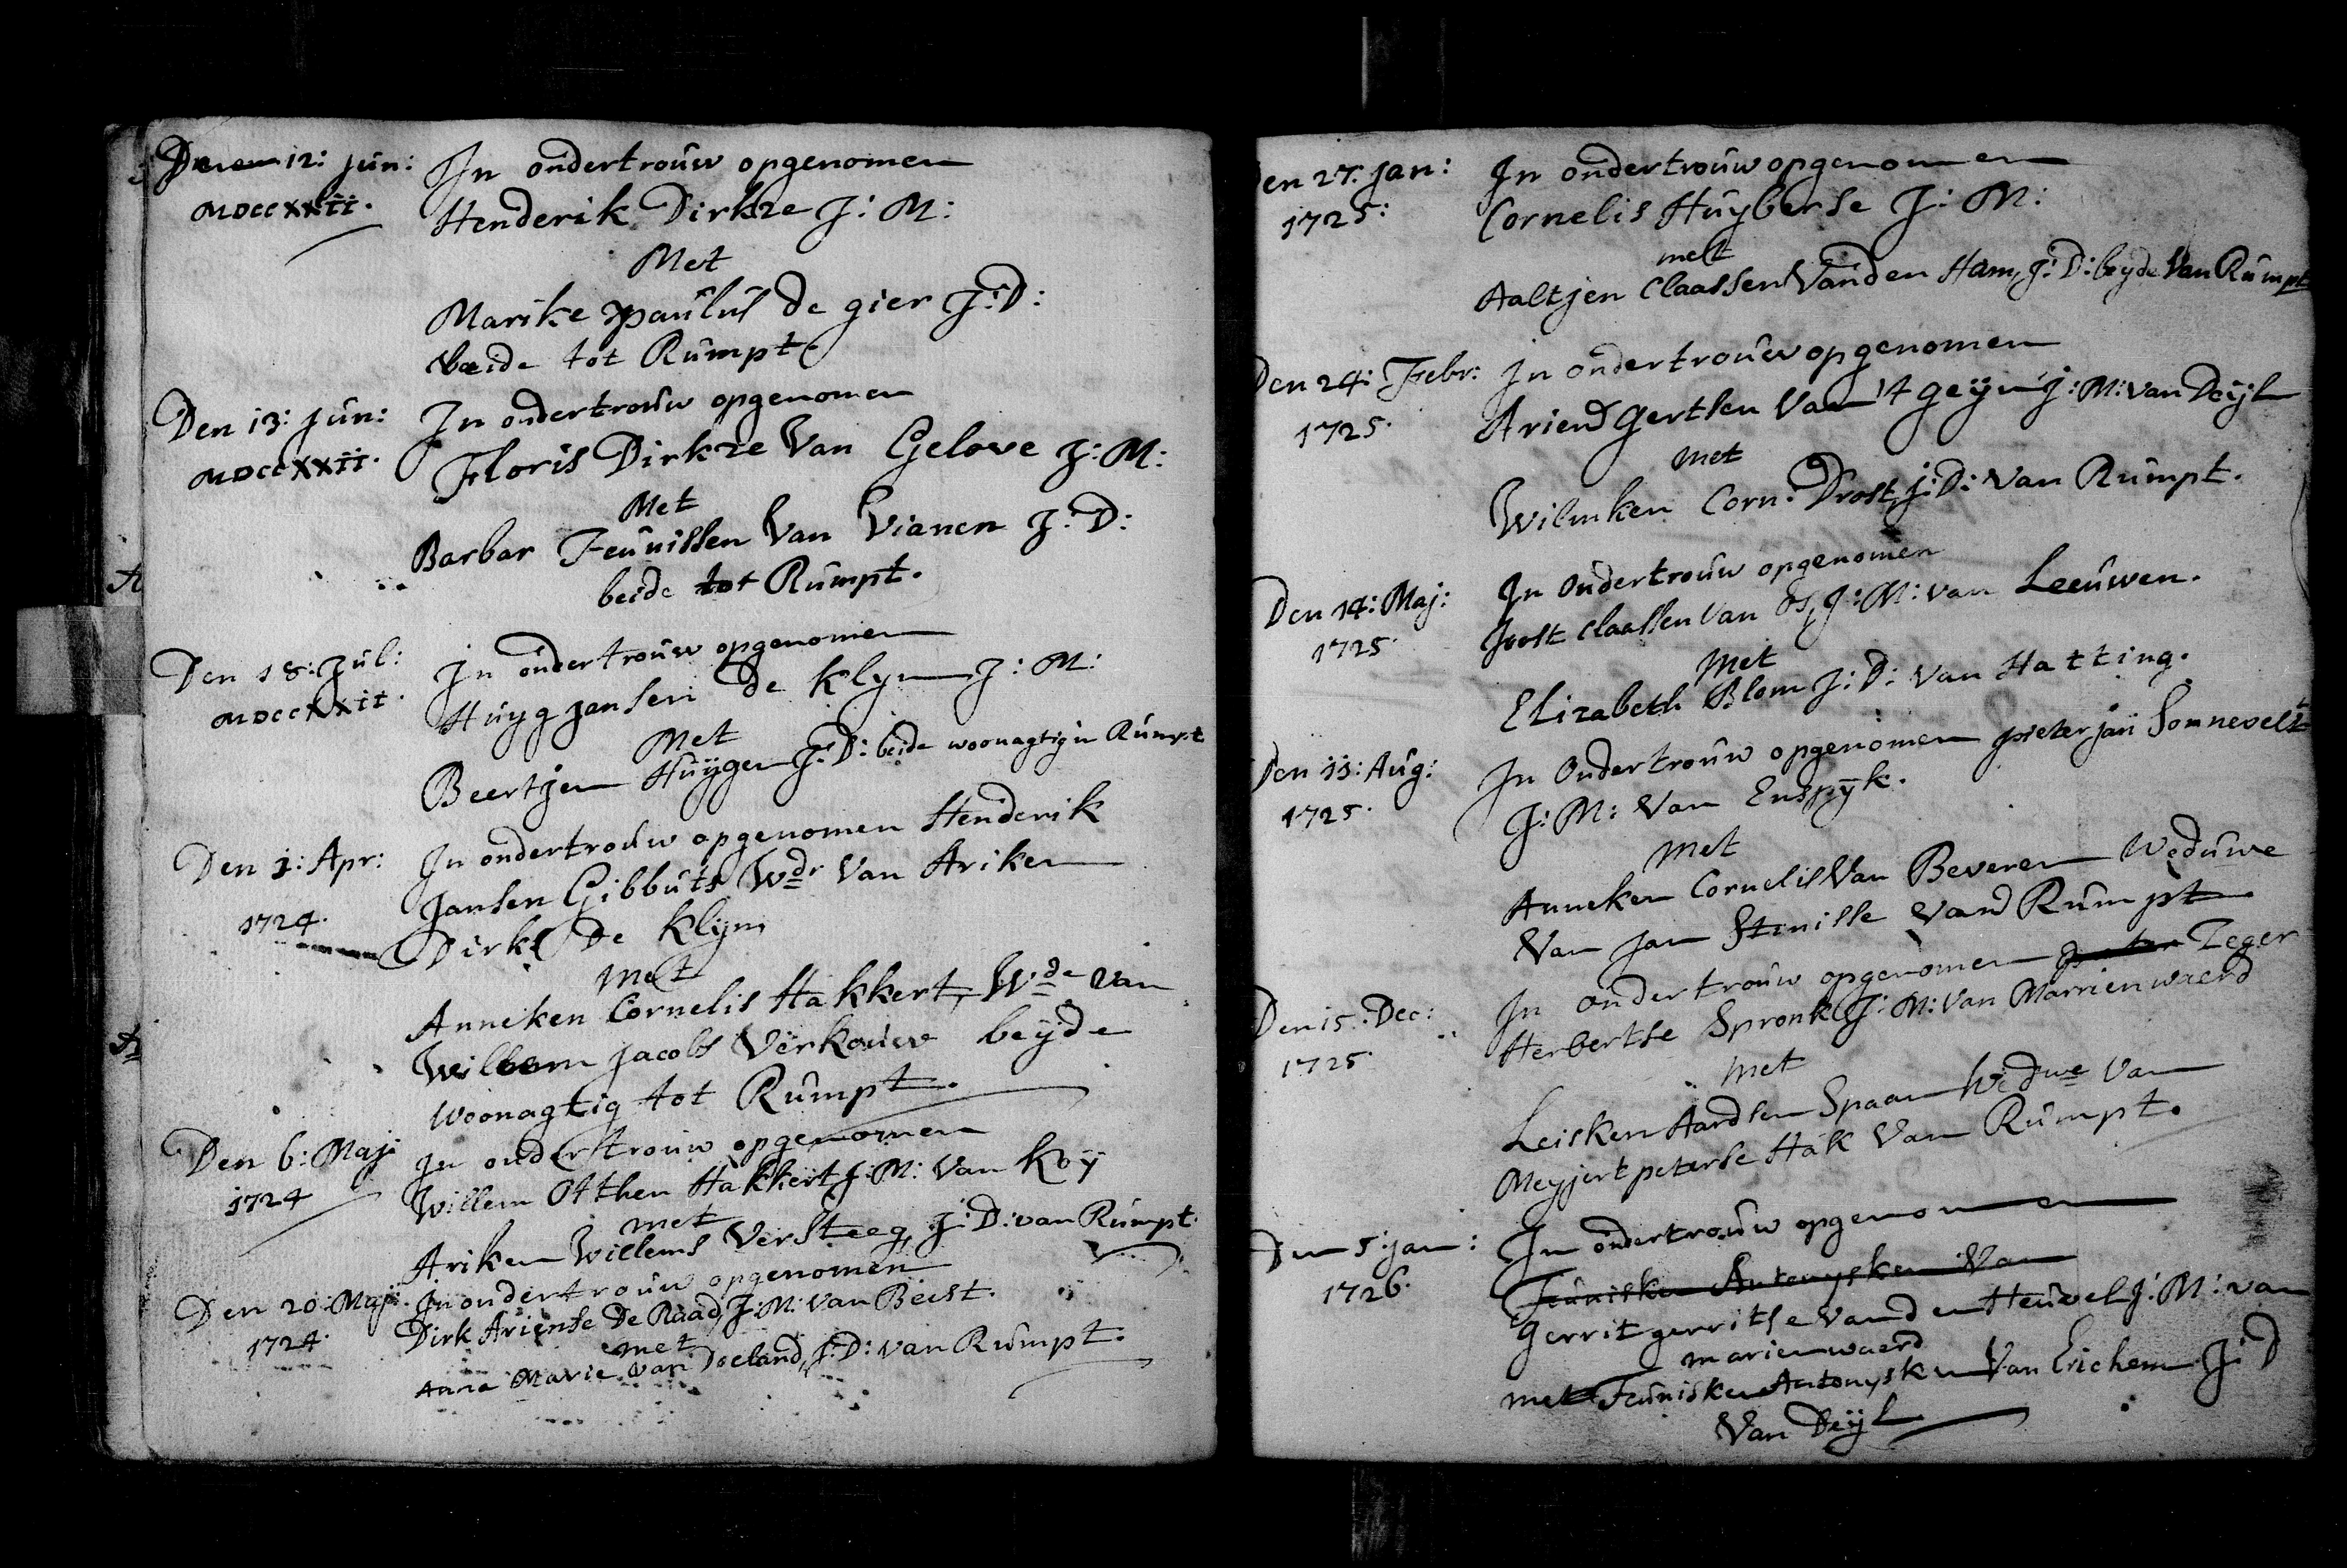 Den 12: Jun:
MDCCXXII.
In ondertrouw opgenomen
Henderik Dirkze J: M:
Met
Marike paulus de gier J: D:
beide tot Rumpt.
Den 13: Jun:
MDCCXXII.
In ondertrouw opgenomen
Floris Dirkze Van Gelove J: M:
Met
Barbar Teunissen Van Vianen J: D:
beide tot Rumpt.
Den 18: Jul:
MDCCXXII.
In ondertrouw opgenomen
Huyg Jansen de Klyn J: M:
Met
Beertjen Huijgen J: D: beide woonagtig in Rumpt
Den 1: Apr:
1724.
In ondertrouw opgenomen Henderik
Jansen Gibbuts Wdr Van Ariken
Dirks De Klijn
met
Anneken Cornelis Hakkert, Wde van
Willem Jacobs Verkouw beijde
Woonagtig tot Rumpt.
Den 6: Maji
1724
In ondertrouw opgenomen
Willem Otthen Hakkert J: M: Van Koÿ
met
Ariken Willems Versteeg, J: D: van Rumpt.
Den 20: Maji
1724.
In ondertrouw opgenomen
Dirk Ariense De Raad, J: M: Van Beest.
met
Anna Marie van Doeland, J: D: van Rumpt.
Den 27: Jan:
1725:
In ondertrouw opgenomen
Cornelis Huyberse J: M:
met
Aaltjen Claassen Vanden Ham, J: D: beyde Van Rumpt
Den 24: Febr:
1725.
In ondertrouw opgenomen
Ariend Gertsen Van 't geijn J: M: van Deijl
met
Wilmken Corn: Drost, J: D: Van Rumpt.
Den 14: Maj:
1725.
In Ondertrouw opgenomen
Joost Claassen Van Os, J: M: van Leeuwen.
Met
Elizabeth Blom J: D: Van Hatting.
Den 11: Aug:
1725.
In Ondertrouw opgenomen pieter jan Somnevelt
J: M: Van Enspyk.
Met
Anneken Cornelis Van Beveren Weduwe
Van Jan Stenisse Van Rumpt
Den 15: Dec:
1725.
In ondertrouw opgenomen Zeger
Herbertse Spronk J: M: Van Marrienwaerd
met
Leisken Aardsen Spaan Wedwe Van
Meyjert peterse Hak Van Rumpt.
Den 5: jan:
1726.
In ondertrouw opgenomen
Teunisken Antonysken Van
Gerrit gerritse Vanden Heuvel J: M: van
marienwaerd
met Teunisken Antonysken Van Erichem J: D
Van Deijl